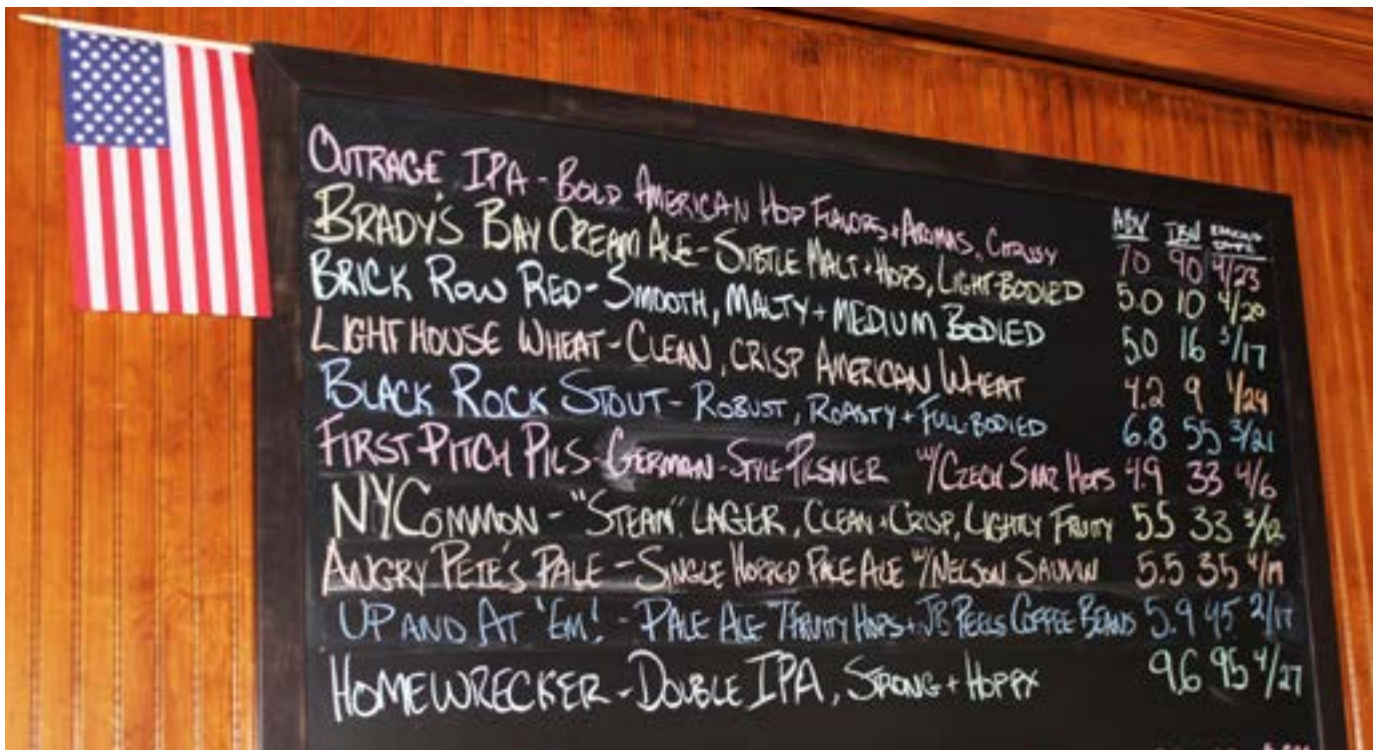 ABV IBU
OUTRAGE IPA - BOLD AMERICAN HOP FLAVORS + AROMAS, CITRUSY 70 90 4/23
BRADY'S BAY CREAM ALE - SUBTLE MALT + HOPS, LIGHT-BODIED 5.0 10 4/20
BRICK ROW RED - SMOOTH, MALTY + MEDIUM BODIED 5.0 16 3/17
LIGHTHOUSE WHEAT - CLEAN, CRISP AMERICAN WHEAT 4.2 9 1/24
BLACK ROCK STOUT - ROBUST, ROASTY + FULL-BODIED 6.8 55 3/21
FIRST PITCH PILS - GERMAN-STYLE PILSNER W/CZECH SAAZ HOPS 4.9 33 4/6
NY COMMON - "STEAM" LAGER, CLEAN + CRISP, LIGHTLY FRUITY 5.5 33 3/12
ANGRY PETE'S PALE - SINGLE HOPPED PALE ALE W/NELSON SAUVIN 5.5 35
UP AND AT 'EM! - PALE ALE FRUITY HOPS + JB PEELS COFFEE BEANS 5.9 45 2/17
HOMEWRECKER - DOUBLE IPA, STRONG + HOPPY 9.6 95 4/27